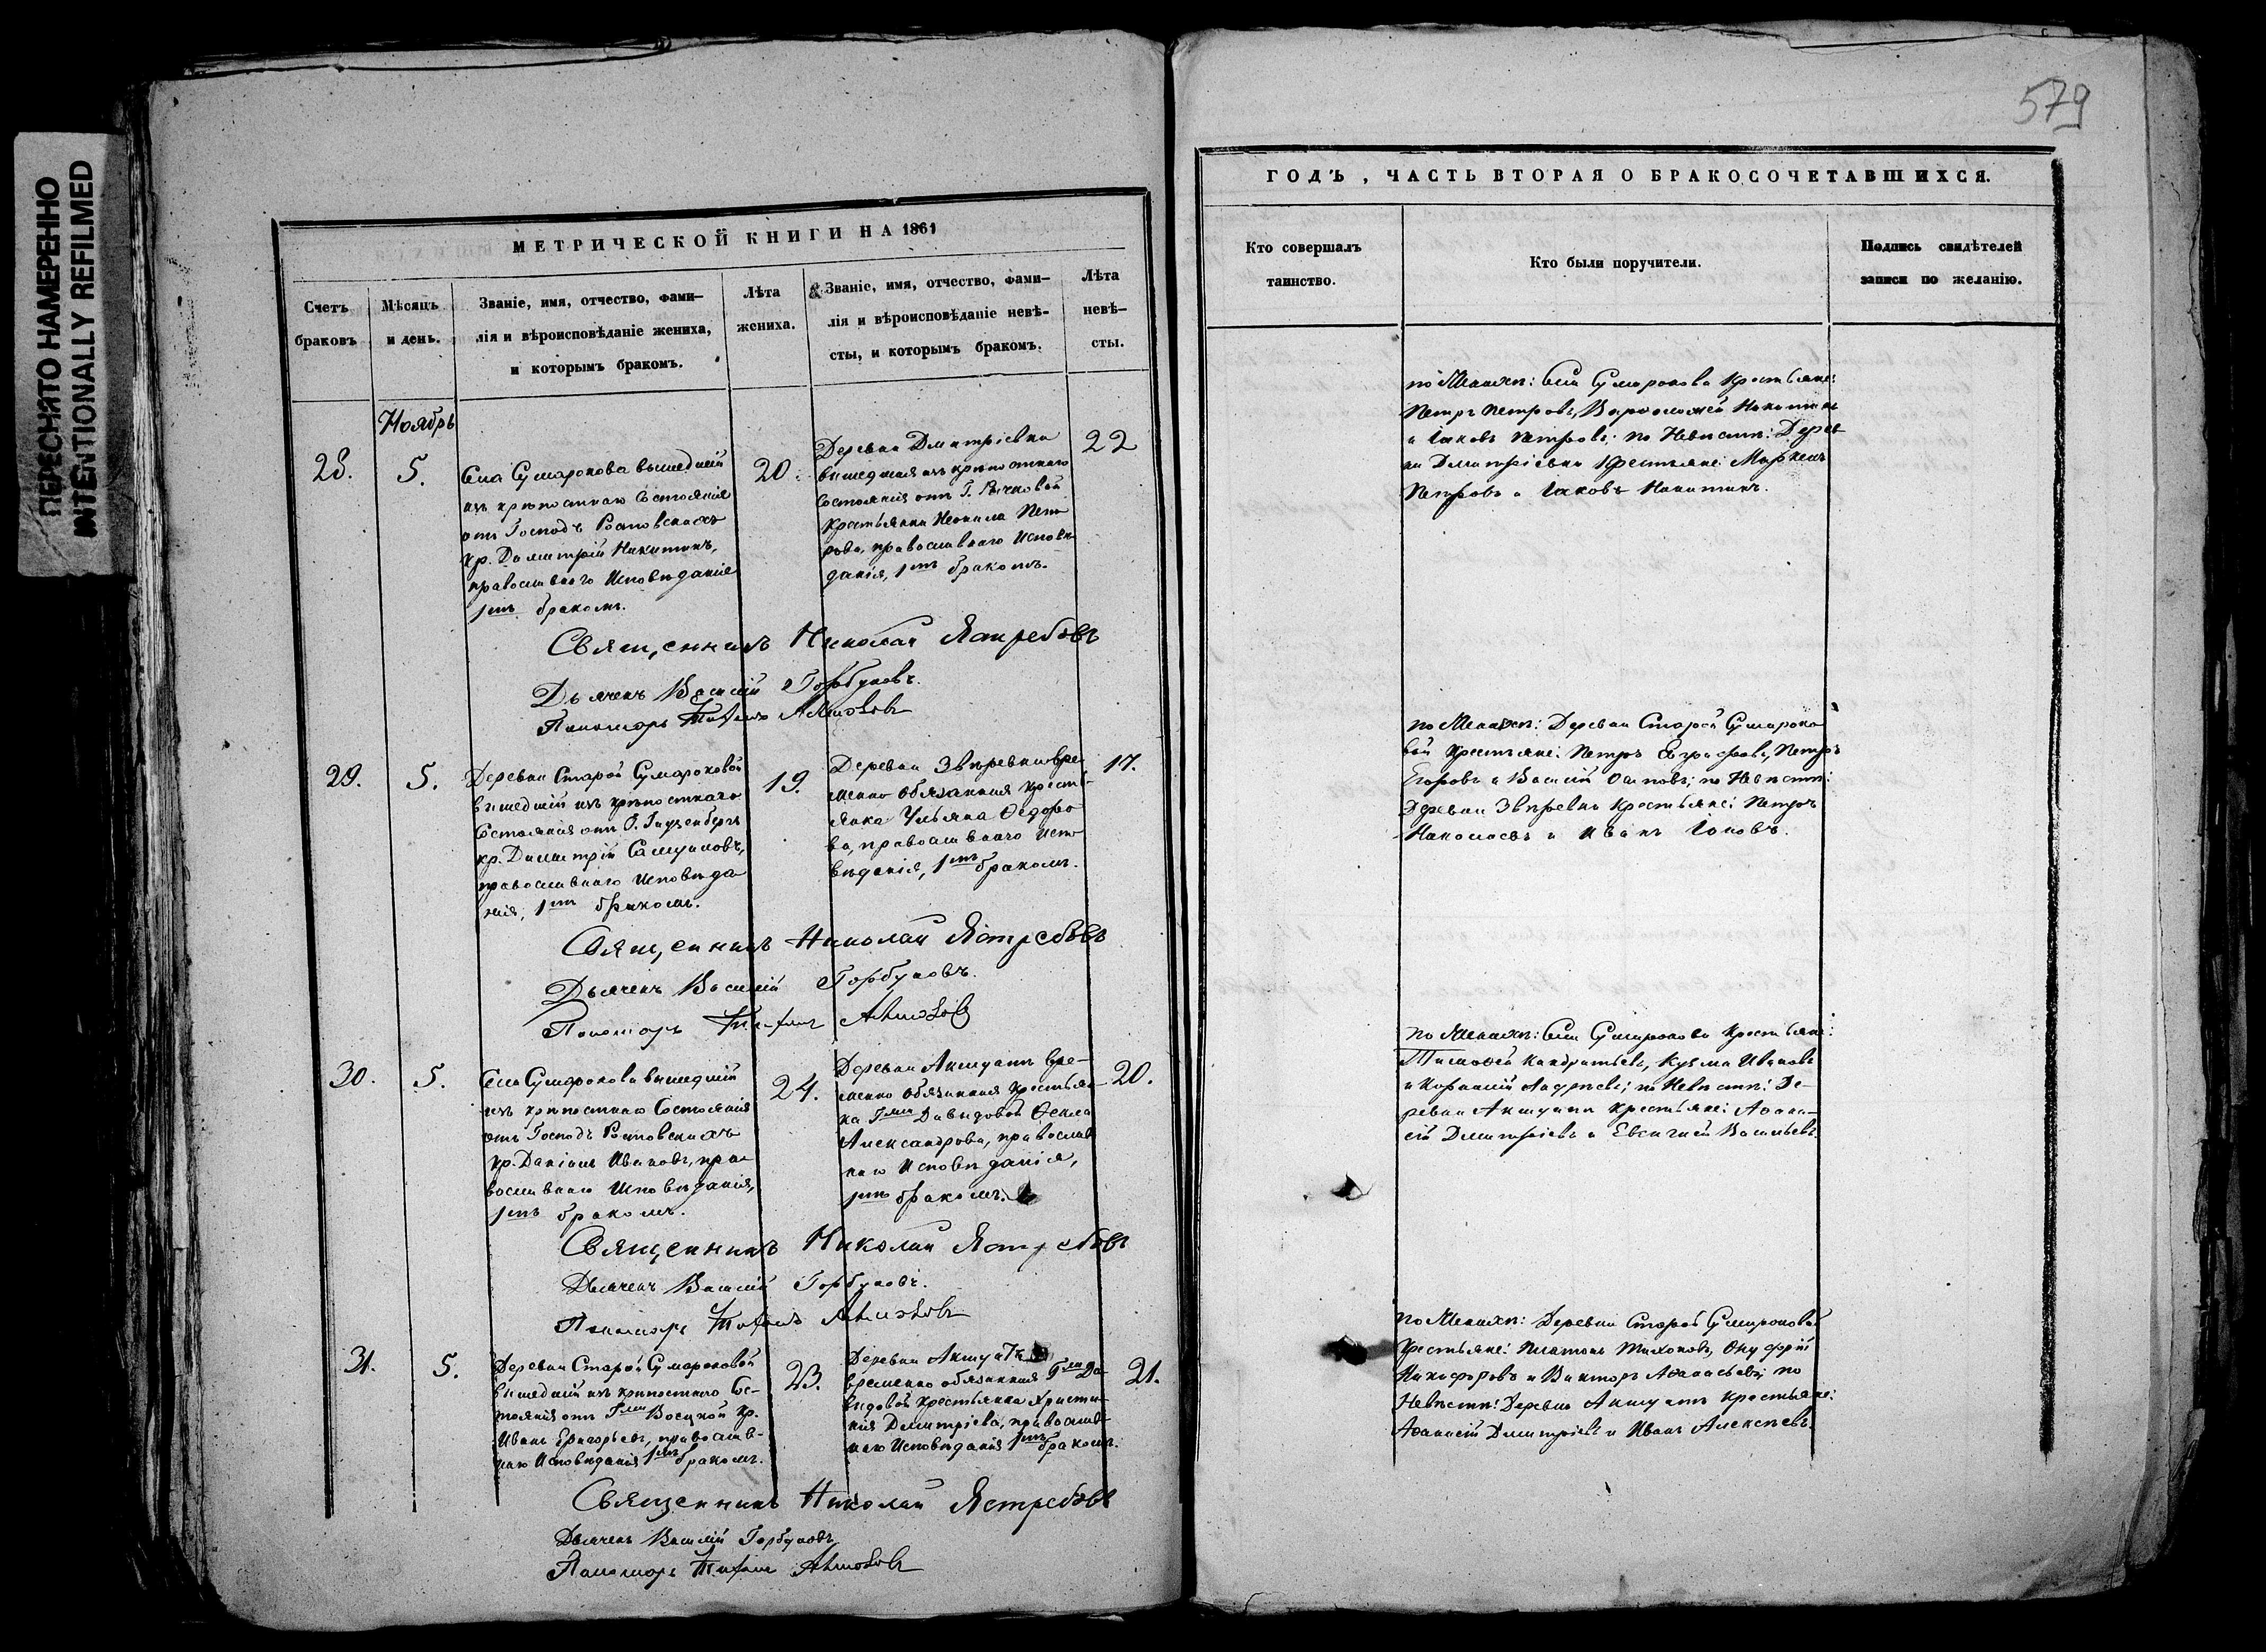 ПЕРЕСНЯТО НАМЕРЕННО
INTENTIONALLY REFILMED
МЕТРИЧЕСКОЙ КНИГИ НА 1861
Счетъ браковъ
Мѣсяцъ и день.
Званіе, имя, отчество, фами-
лія и вѣроисповѣданіе жениха,
и которымъ бракомъ.
Лѣта жениха.
Званіе, имя, отчество, фами-
лія и вѣроисповѣданіе невѣ-
сты, и которымъ бракомъ.
Лѣта невѣ-
сты.
Ноябрь
28.
5.
Села Сумарокова вышедшій
изъ крѣпостнаго состоянія
отъ Господъ Ростовскихъ
кр. Димитрій Никитинъ,
православнаго Исповѣданія
1мъ бракомъ.
20.
Деревни Дмитріевки
вышедшая изъ крѣпостнаго
состоянія отъ Г. Рычковой
крестьянка Неонила Пет
рова, православнаго Исповѣ
данія, 1мъ бракомъ.
22
Священникъ Николай Ястребовъ
Дьячекъ Василій Горбуновъ.
Пономарь
29.
5.
Деревни Старой Сумароковой
вышедшій изъ крѣпостнаго
Состоянія отъ
кр. Димитрій Самуиловъ,
православнаго Исповѣда
нія, 1мъ бракомъ.
19.
Деревни Звѣревки вре
менно обязанная кресть
янка Ульяна Ѳедоро
ва, православнаго Испо
вѣданія, 1мъ бракомъ.
17.
Священникъ Николай Ястребовъ
Дьячекъ Василій Горбуновъ.
Пономарь
30.
5.
Села Сумарокова вышедшій
изъ крѣпостнаго Состоянія
отъ Господъ Ростовскихъ
кр. Даніилъ Ивановъ, пра
вославнаго Исповѣданія,
1мъ бракомъ.
24.
Деревни Акшуатъ вре-
менно обязанная крестьян
ка Гжи Давыдовой Ѳекла
Александрова, православ
наго Исповѣданія,
1мъ бракомъ.
20.
Священникъ Николай Ястребовъ
Дьячекъ Василій Горбуновъ.
Пономарь
31.
5.
Деревни Старой Сумароковой
вышедшій изъ крѣпостнаго Сос-
тоянія отъ Гжи кр.
Иванъ Григорьевъ, православ-
наго Исповѣданія 1мъ бракомъ.
23.
Деревни
временно обязанная Гжи Да
выдовой крестьянка Христи-
нія Димитріева, православ
наго Исповѣданія 1мъ бракомъ.
21.
Священникъ Николай Ястребовъ
Дьячекъ Василій Горбуновъ
Пономарь
579
ГОДЪ, ЧАСТЬ ВТОРАЯ О БРАКОСОЧЕТАВШИХСЯ.
Кто совершалъ
таинство.
Кто были поручители.
Подпись свидѣтелей
записи по желанію.
по Женихѣ: Села Сумарокова крестьяне:
Петръ Петровъ, Варѳоломей Никитинъ
и Іаковъ Петровъ; по Невѣстѣ: Дерев
ни Дмитріевки крестьяне: Маркелъ
Петровъ и Іаковъ Никитинъ.
по Женихѣ: Деревни Старой Сумароко
вой крестьяне: Петръ Евграфовъ, Петръ
Егоровъ и Василій Осиповъ; по Невѣстѣ:
Деревни Звѣревки крестьяне: Петръ
Николаевъ и Иванъ Іоновъ.
по Женихѣ: Села Сумарокова Крестьяне:
Тимоѳей Кандратьевъ, Кузьма Ивановъ
и Корнилій Андреевъ; по Невѣстѣ: Де-
ревни Акшуатъ крестьяне: Аѳана-
сій Дмитріевъ и Евсигній Васильевъ.
по Женихѣ: Деревни Старой Сумароковой
крестьяне: Платонъ Тихоновъ, Онуфрій
Никифоровъ и Викторъ Аѳанасьевъ; по
Невѣстѣ: Деревни Акшуатъ крестьяне:
Аѳанасій Дмитріевъ и Иванъ Алексѣевъ.